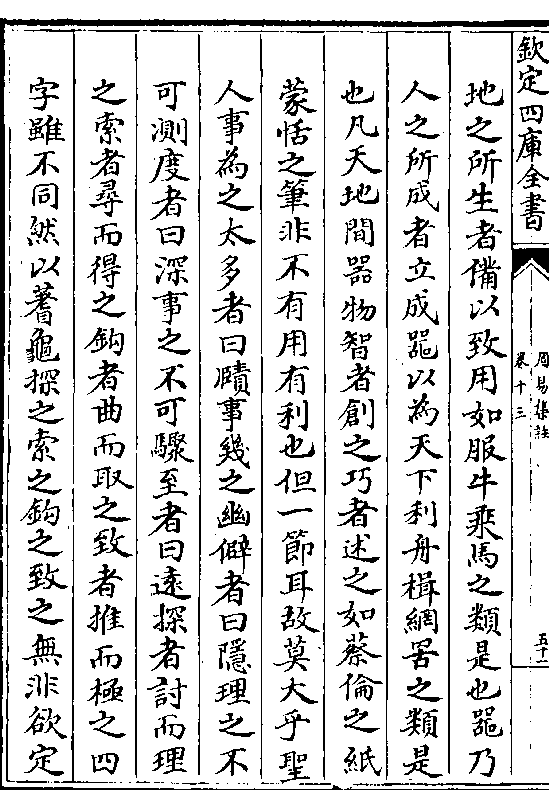 欽定四庫全書
周易集註
卷十三
五十二
地之所生者備以致用如服牛乘馬之類是也噐乃
人之所成者立成噐以為天下利舟楫網罟之類是
也凡天地間器物智者創之巧者述之如蔡倫之紙
蒙恬之筆非不有用有利也但一節耳故莫大乎聖
人事為之太多者曰賾事幾之幽僻者曰隱理之不
可測度者曰深事之不可驟至者曰遠探者討而理
之索者尋而得之鈎者曲而取之致者推而極之四
字雖不同然以蓍龜探之索之鈎之致之無非欲定